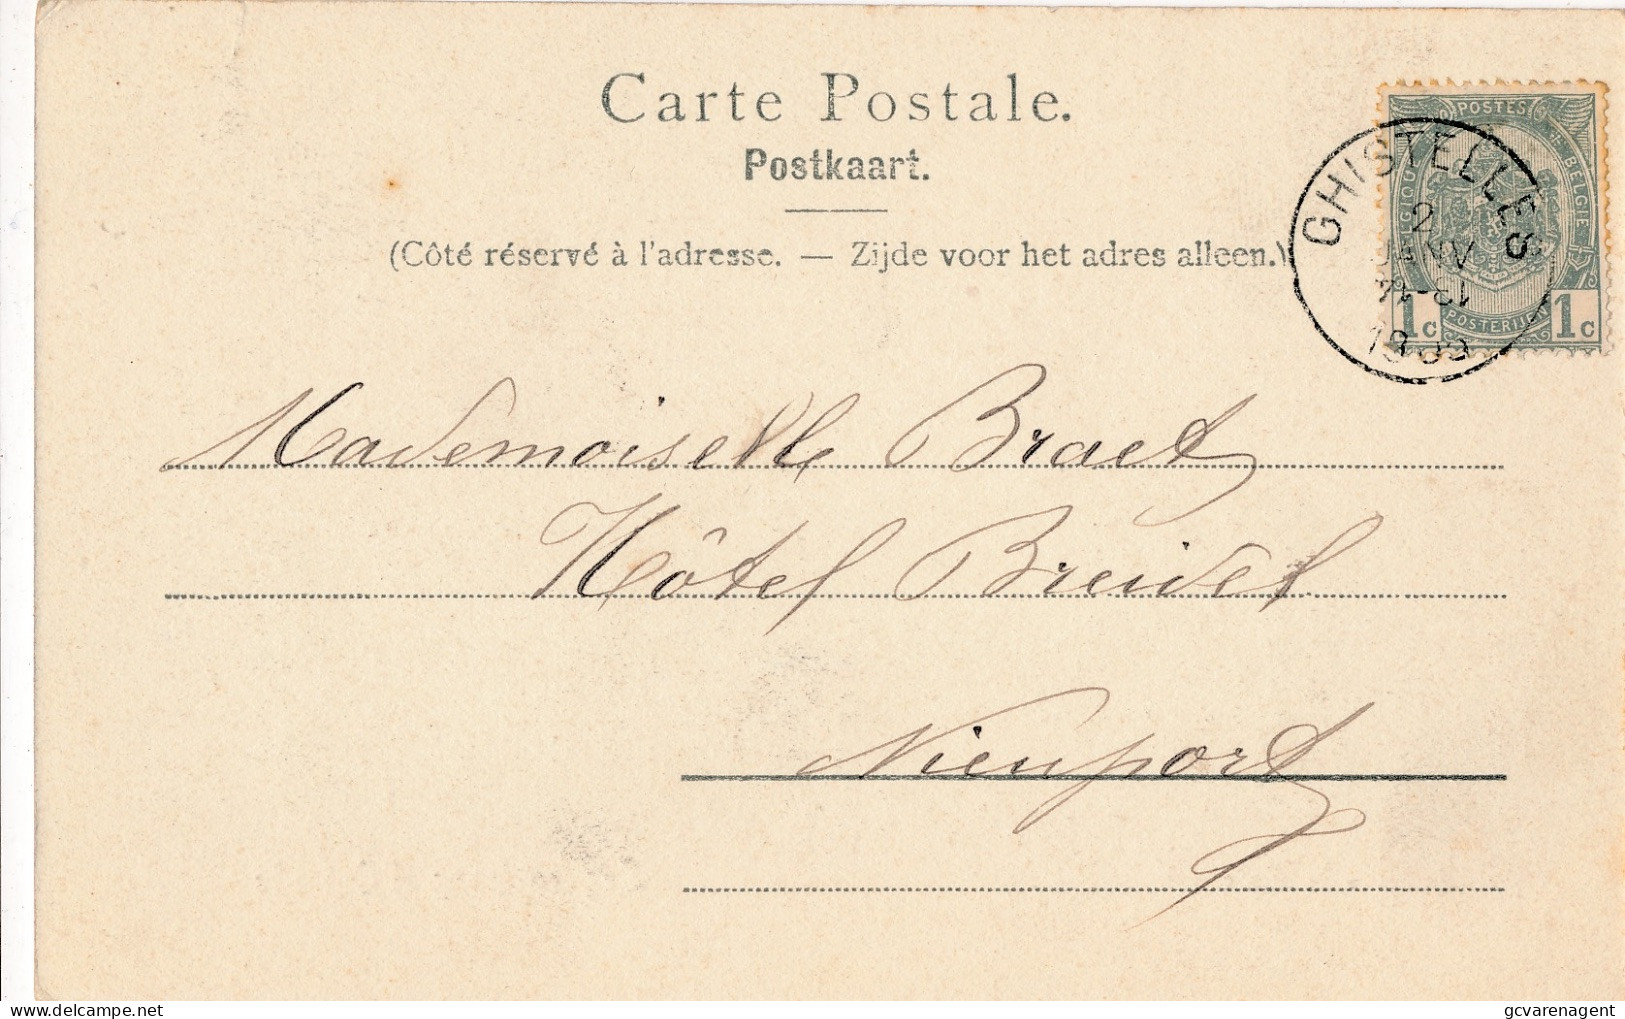 Carte Postale.
Postkaart.
(Côté réservé à l'adresse. — Zijde voor het adres alleen.)
POSTES
BELGIQUE
BELGIE
1c POSTERIJEN 1c
GHISTELLES
2
JANV
Mademoiselle Braet
Hôtel Breidel
Nieuport
delcampe.net
gcvarenagent